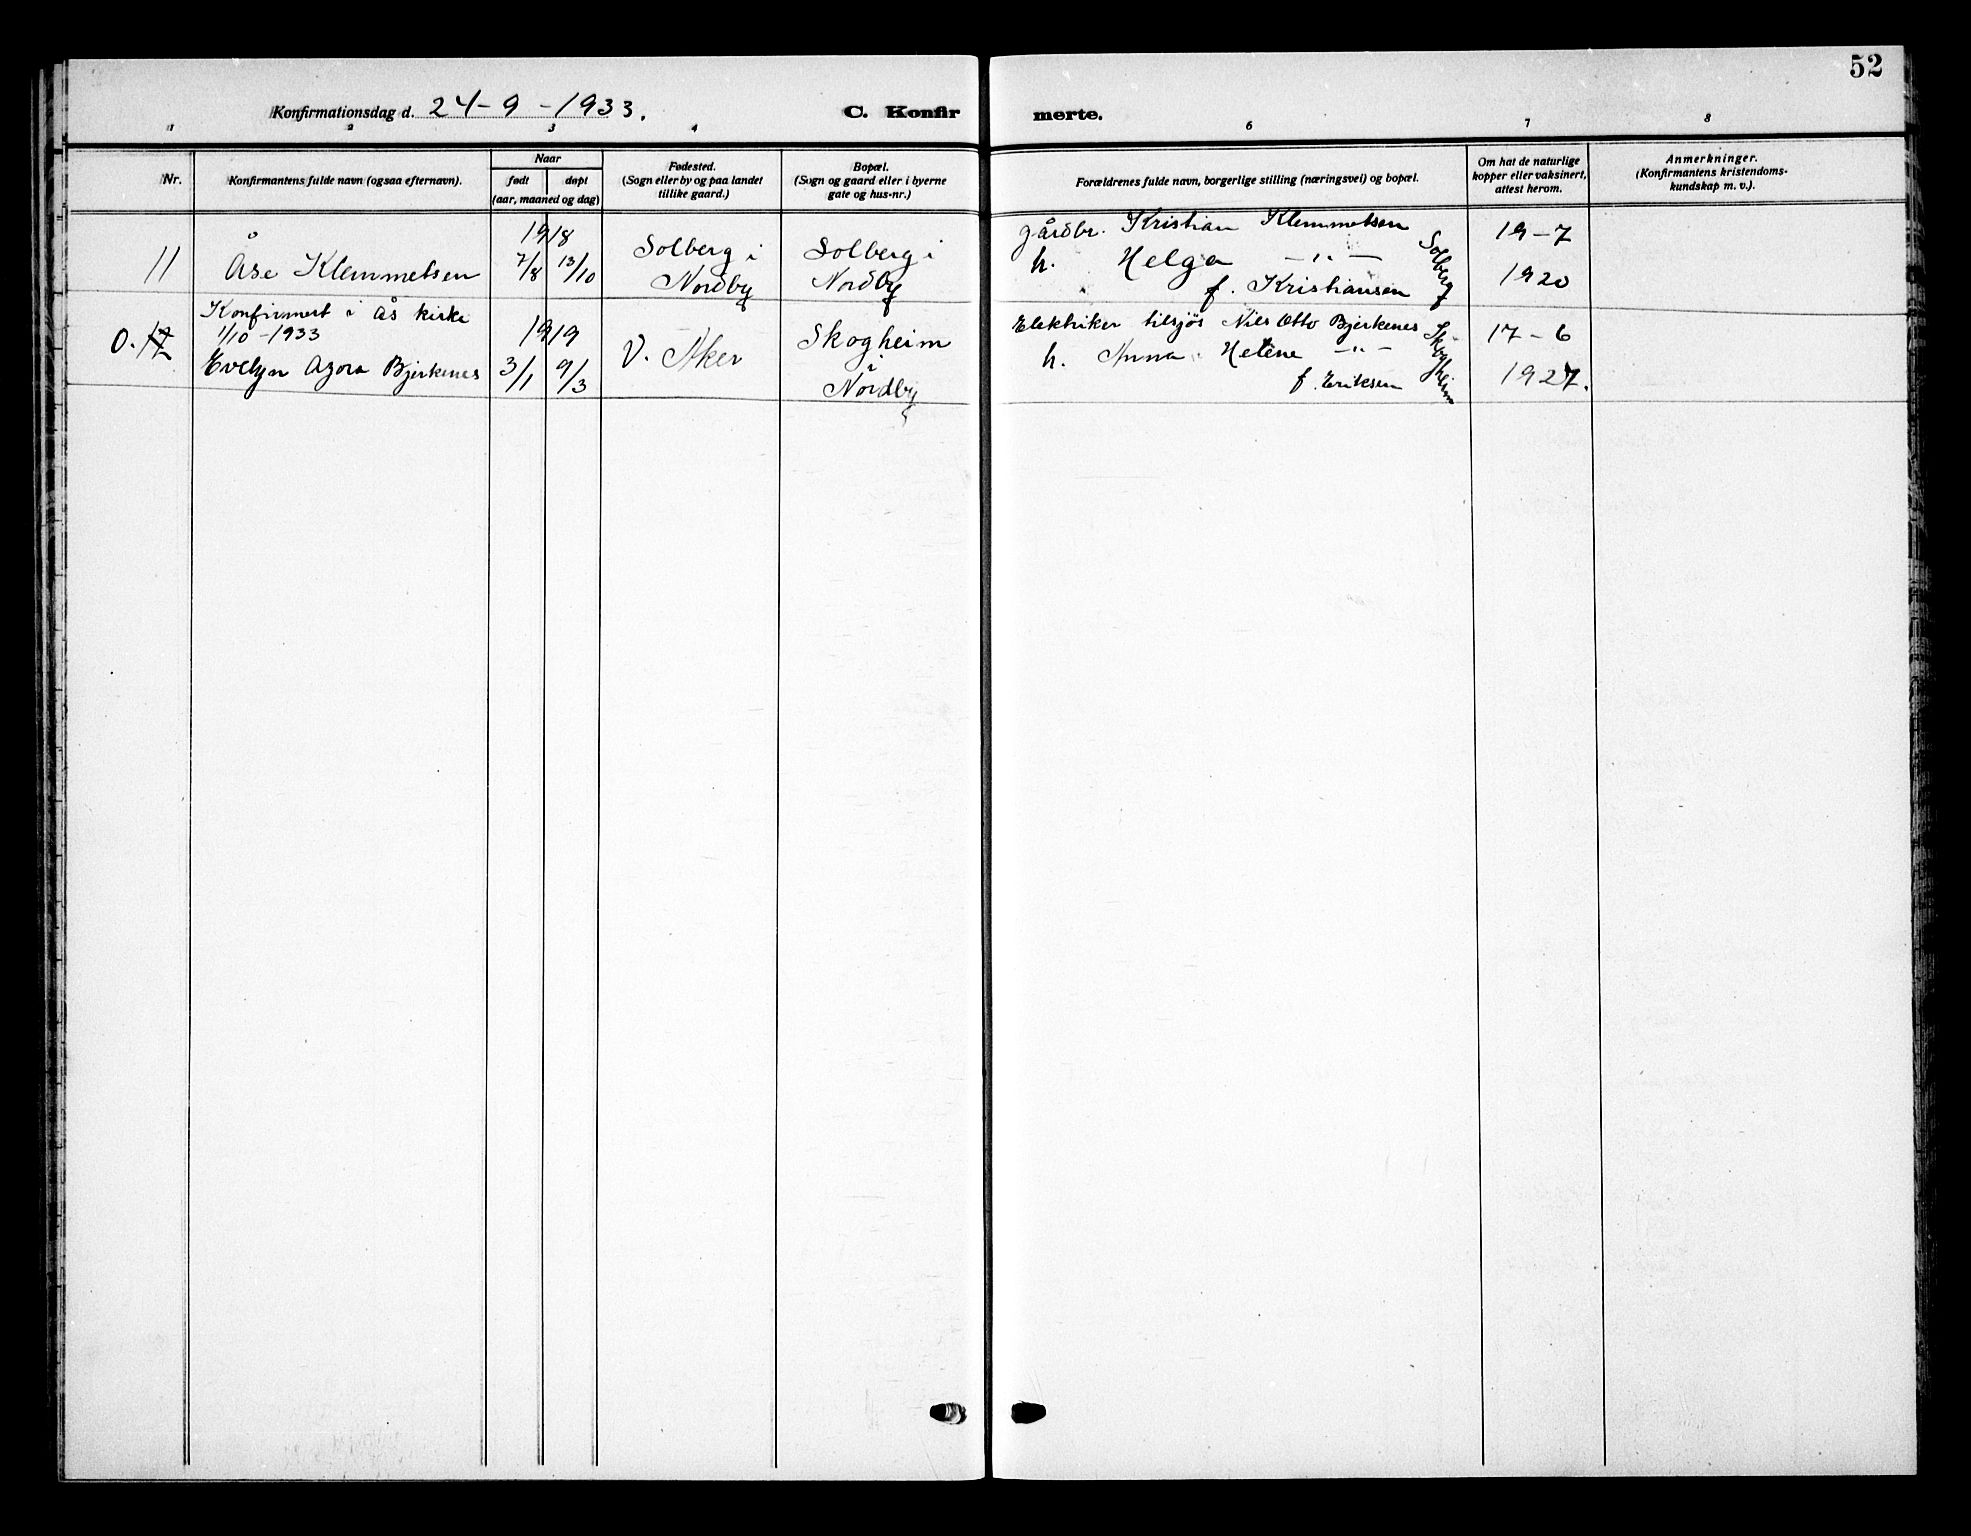 52
Konfirmationsdag d. 24-9-1933.
C. Konfir
merte.
1 2 3 4 6 7 8
Nr.
Konfirmantens fulde navn (ogsaa efternavn).
Naar
født
døpt
(aar, maaned og dag)
Fødested.
(Sogn eller by og paa landet
tillike gaard.)
Bopæl.
(Sogn og gaard eller i byerne
gate og hus-nr.)
Forældrenes fulde navn, borgerlige stilling (næringsvei) og bopæl.
Om hat de naturlige
kopper eller vaksinert,
attest herom.
Anmerkninger.
(Konfirmantens kristendoms-
kundskap m. v.).
11
Åse Klemmetsen
1918
7/8 13/10
Solberg i
Nordby
Solberg i
Nordby
gårdbr. Kristian Klemmetsen
h. Helga -"-
f. Kristiansen
Solberg
19-7
1920
0. 12
Konfirmert i Ås kirke
1/10-1933
Evelyn Agora Bjerkenes
1919
3/1 9/3
V. Aker
Skogheim
i
Nordby
Elektriker tilsjøs Nils Otto Bjerkenes
h. Anna Helene -"-
f. Eriksen
Skogheim
17-6
1927.